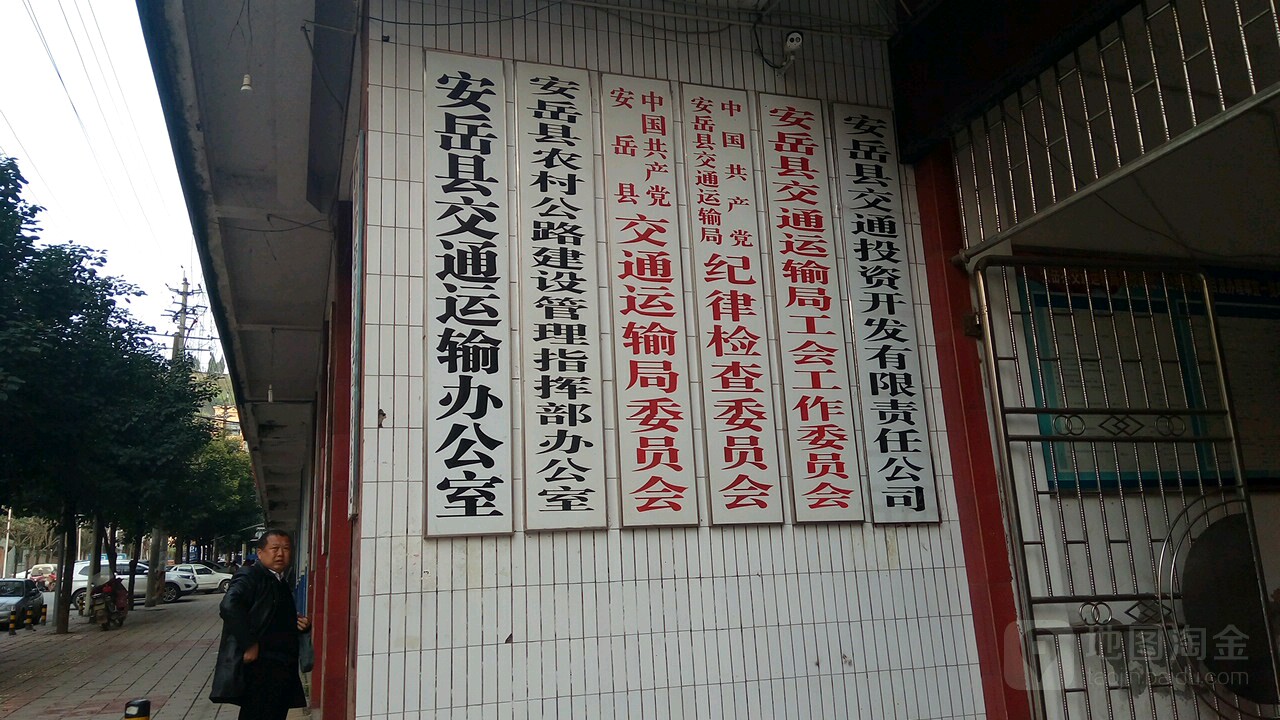 安岳县交通运输办公室
安岳县农村公路建设管理指挥部办公室
中国共产党
安岳县
交通运输局委员会
中国共产党
安岳县交通运输局
纪律检查委员会
安岳县交通运输局工会工作委员会
安岳县交通投资开发有限责任公司
地图淘金
taojin.baidu.com